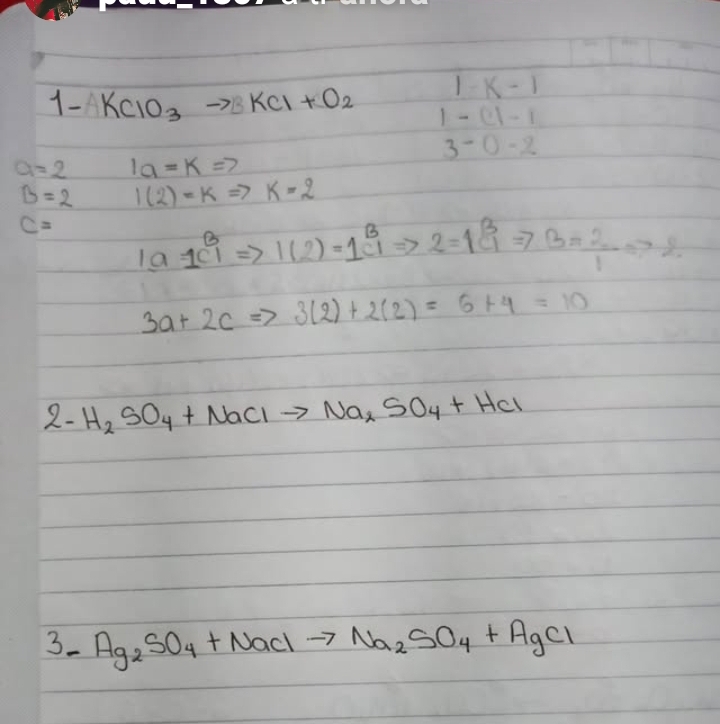 1-AKClO3 →BKCl + O2
1-K-1
1-Cl-1
3-O-2
a=2
B=2
C=
1a=K =>
1(2)=K => K=2
1a=1Cl B => 1(2)=1Cl B => 2=1Cl B => B=2/1 => 2
3a+2c => 3(2)+2(2) = 6+4 = 10
2-H2SO4 + NaCl → Na2SO4 + HCl
3- Ag2SO4 + NaCl → Na2SO4 + AgCl